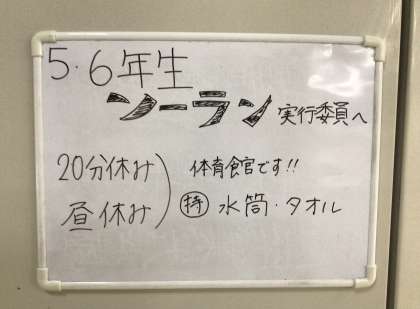 5・6年生
ソーラン 実行委員へ
20分休み) 体育館です!!
昼休み) 持 水筒・タオル